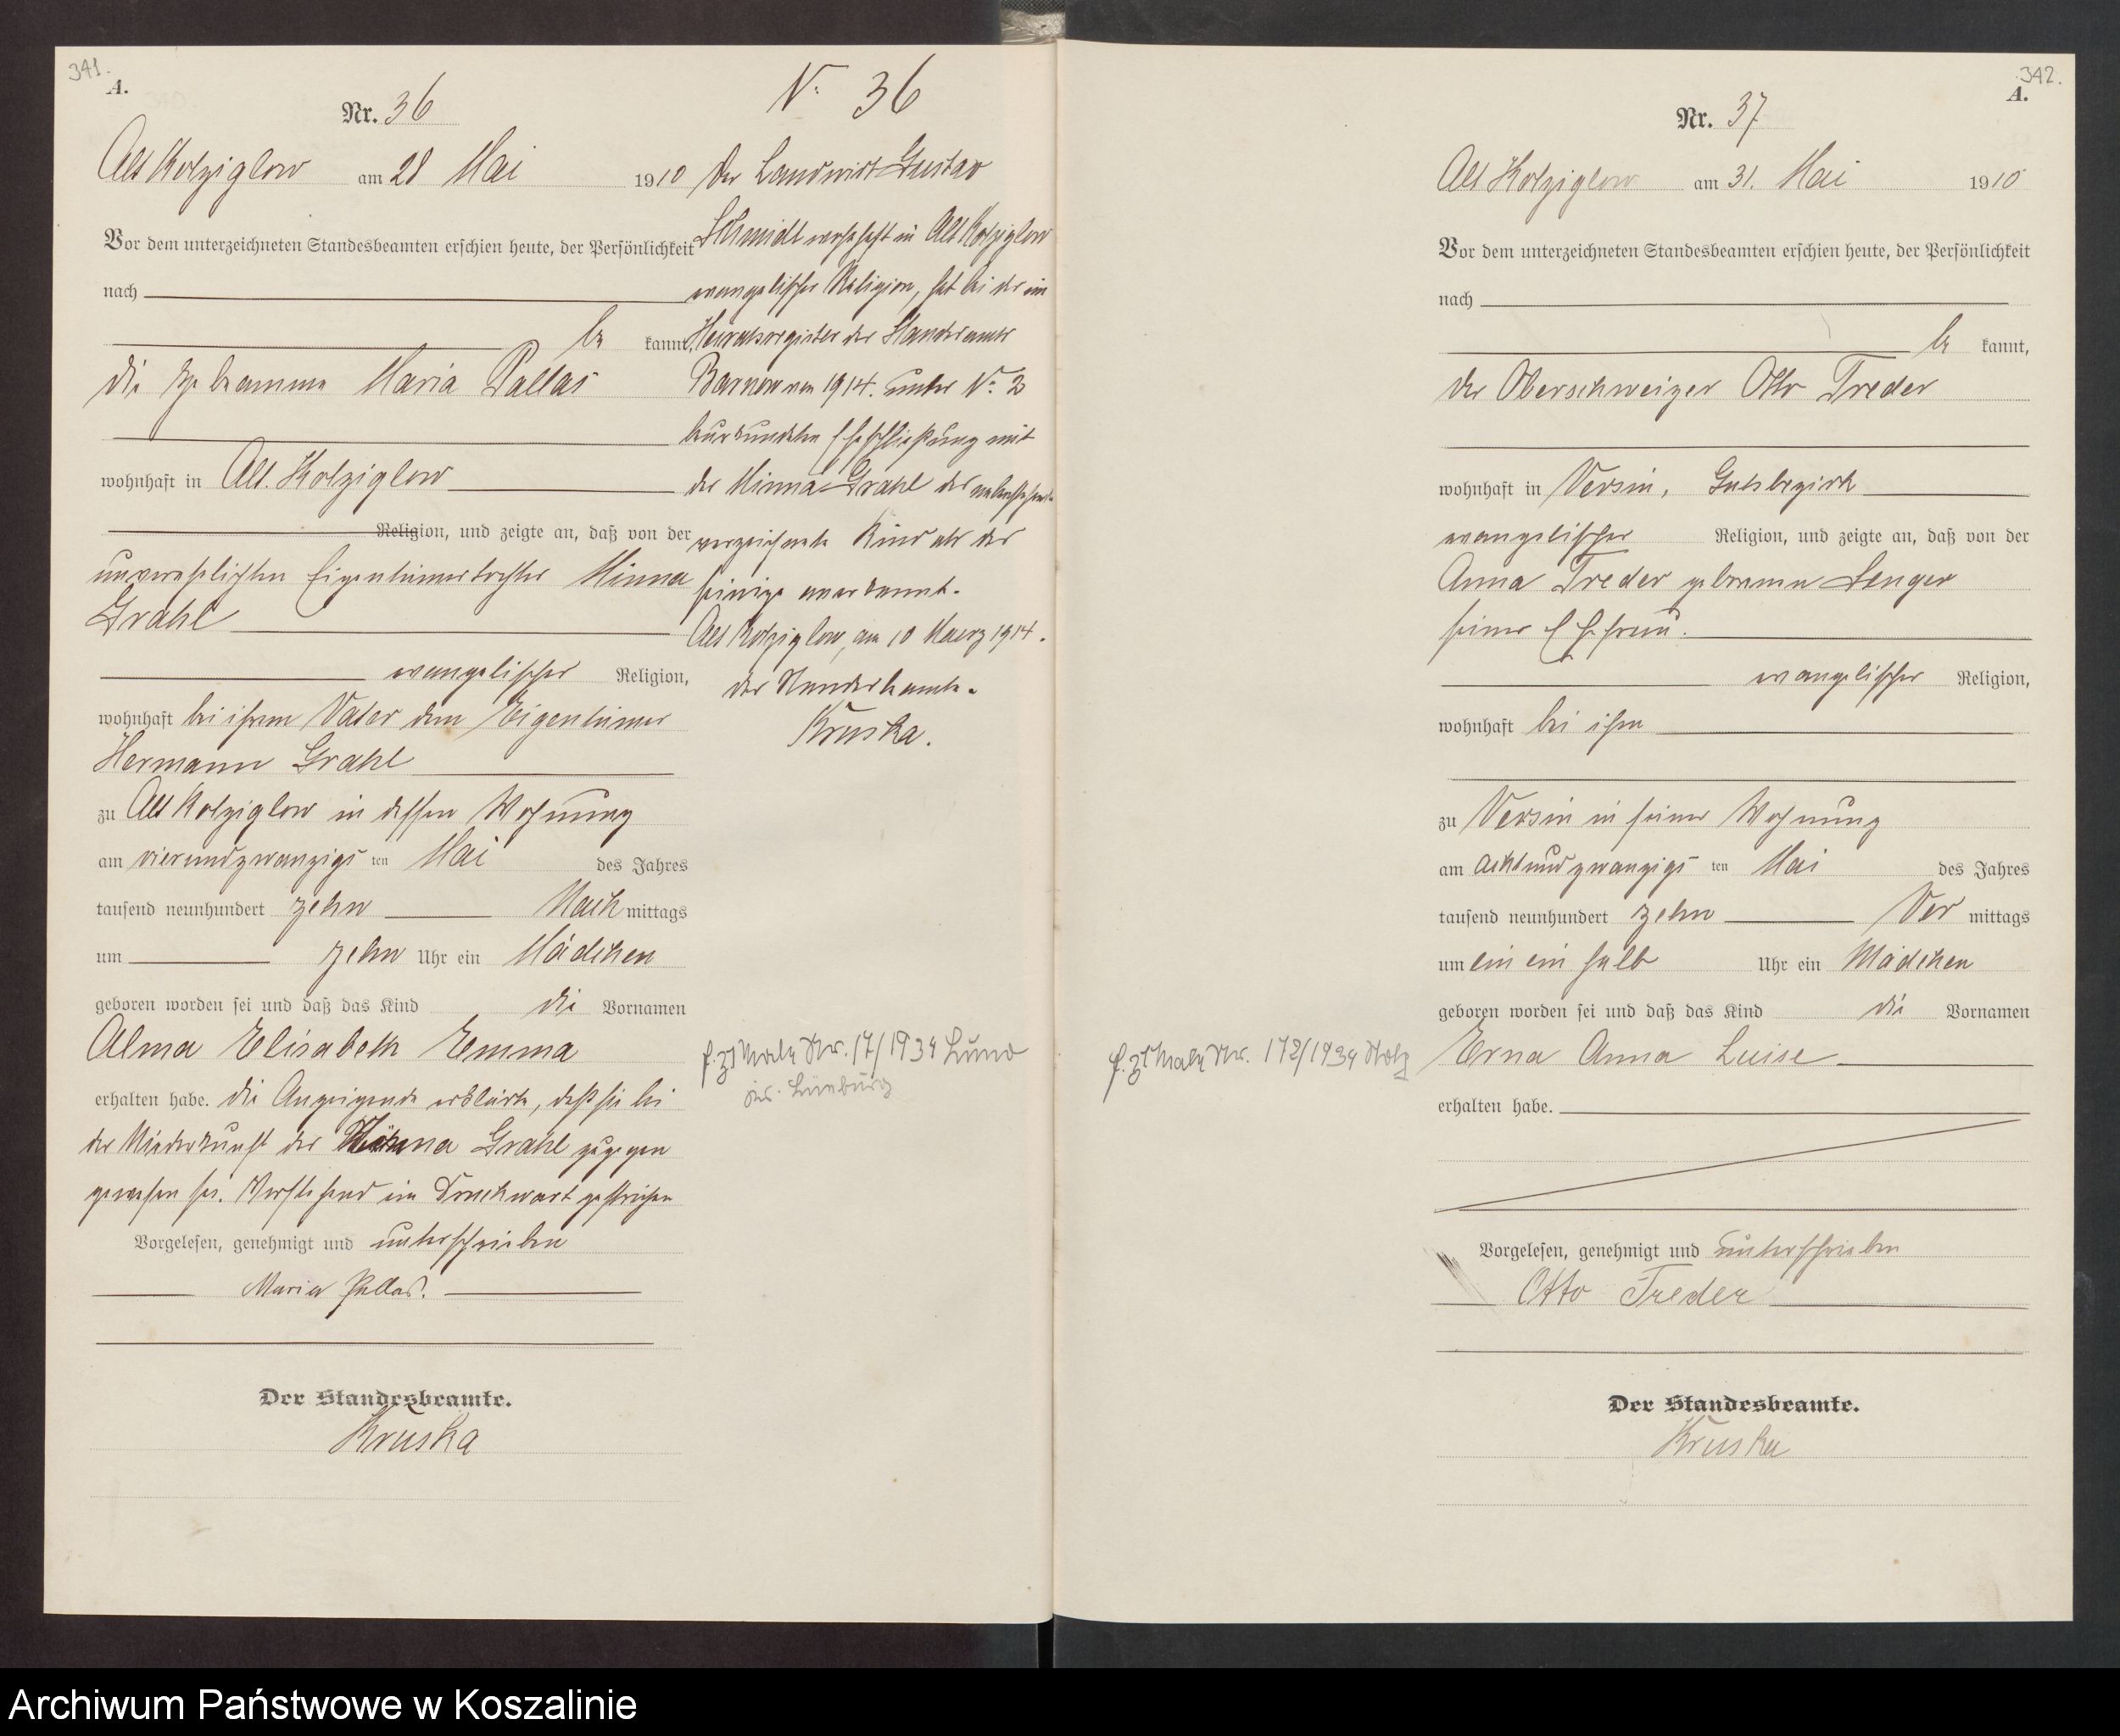 341.
A.
Nr. 36
Alt Kolziglow am 28 Mai 1910
Vor dem unterzeichneten Standesbeamten erschien heute, der Persönlichkeit
nach
be kannt,
die Hebeamme Maria Pallas
wohnhaft in Alt. Kolziglow
Religion, und zeigte an, daß von der
unverehelichten Eigentümertochter Minna
Grahl
evangelischer Religion,
wohnhaft bei ihrem Vater dem Eigentümer
Hermann Grahl
zu Alt Kolziglow in dessen Wohnung
am vierundzwanzigs ten Mai des Jahres
tausend neunhundert zehn Nach mittags
um zehn Uhr ein Mädchen
geboren worden sei und daß das Kind die Vornamen
Alma Elisabeth Emma
erhalten habe. die Anzeigende erklärte, daß sie bei
der Niederkunft der Minna Grahl zugegen
gewesen sei. Vorstehend ein Druckwort gestrichen
Vorgelesen, genehmigt und unterschrieben
Maria Pallas.
Der Standesbeamte.
Kruska
N: 36
Der Landwirt Gustav
Schmidt wohnhaft in Alt Kolziglow
evangelischer Religion, hat bei der im
Heiratsregister des Standesamts
Barnow von 1914. unter N: 2
beurkundeten Eheschließung mit
der Minna Grahl das nebenstehende
verzeichnete Kind als das
seinige anerkannt.
Alt Kolziglow, am 10 Maerz 1914.
der Standesbeamte.
Kruska.
Nr. 17/1934
342.
A.
Nr. 37
Alt Kolziglow am 31. Mai 1910
Vor dem unterzeichneten Standesbeamten erschien heute, der Persönlichkeit
nach
be kannt,
der Oberschweizer Otto Treder
wohnhaft in Versin, Gutsbezirk
evangelischer Religion, und zeigte an, daß von der
Anna Treder geborenen Senger
seiner Ehefrau.
evangelischer Religion,
wohnhaft bei ihm
zu Versin in seiner Wohnung
am achtundzwanzigs ten Mai des Jahres
tausend neunhundert zehn Vor mittags
um ein ein halb Uhr ein Mädchen
geboren worden sei und daß das Kind die Vornamen
Erna Anna Luise
erhalten habe.
Vorgelesen, genehmigt und unterschrieben
Otto Treder
Der Standesbeamte.
Kruska
Nr. 172/1934 Stolp
Archiwum Państwowe w Koszalinie